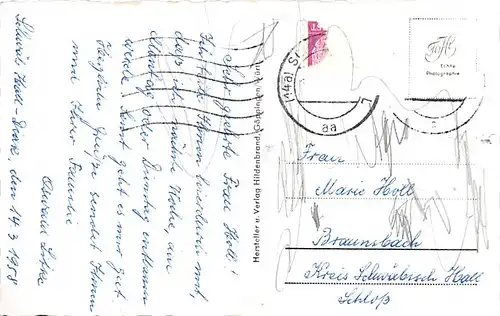 Schwäb. Hall-Diak, den 14.3.1958
Sehr geehrte Frau Holl!
Ich teile Ihnen mit,
daß ich nächste Woche, am
Montag oder Dienstag entlassen
werde. Sonst geht es mir gut.
Herzliche Grüße sendet Ihnen
und Ihrer Familie
Hersteller u. Verlag Hildenbrand, Göppingen/Württ.
(14a) S
aa
Echte
Photographie
Frau
Marie Holl
Braunsbach
Kreis Schwäbisch Hall
Schloß